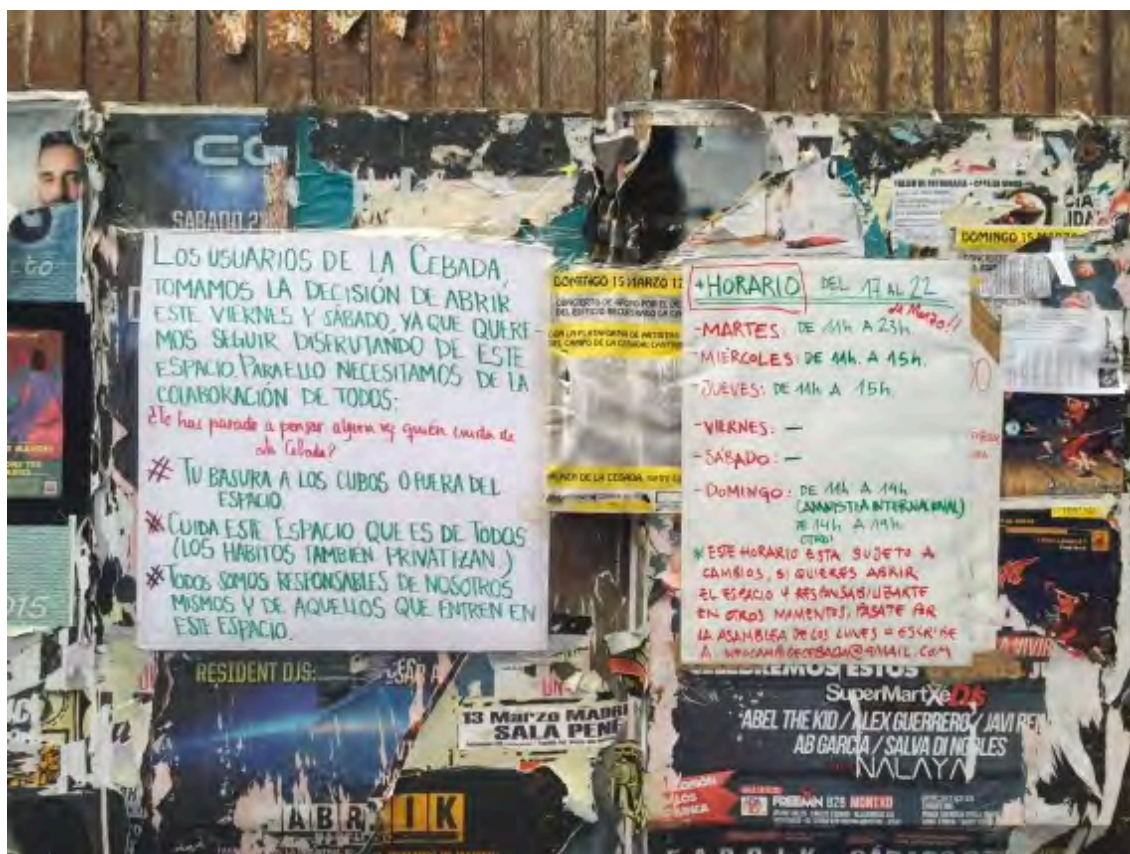 SABADO 2
LOS USUARIOS DE LA CEBADA,
TOMAMOS LA DECISIÓN DE ABRIR
ESTE VIERNES Y SÁBADO, YA QUE QUERE-
MOS SEGUIR DISFRUTANDO DE ESTE
ESPACIO. PARA ELLO NECESITAMOS DE LA
COLABORACIÓN DE TODOS:
¿Te has parado a pensar alguna vez quién cuida de
la Cebada?
# TU BASURA A LOS CUBOS O FUERA DEL
ESPACIO.
# CUIDA ESTE ESPACIO QUE ES DE TODOS
(LOS HÁBITOS TAMBIEN PRIVATIZAN.)
# TODOS SOMOS RESPONSABLES DE NOSOTROS
MISMOS Y DE AQUELLOS QUE ENTREN EN
ESTE ESPACIO.
DOMINGO 15 MARZO 12
CONCIERTO DE APOYO POR EL
CON LA PLATAFORMA DE ARTISTAS
DEL CAMPO DE LA CEBADA
DE LA CEBADA
DOMINGO 15 MARZO
+HORARIO DEL 17 AL 22
de Marzo!!
-MARTES: DE 11h A 23h.
-MIÉRCOLES: DE 11h. A 15h.
-JUEVES: DE 11h A 15h.
-VIERNES: -
-SÁBADO: -
-DOMINGO: DE 11h A 14h
(AMNISTIA INTERNACIONAL)
DE 14h A 19h.
OTRO!
* ESTE HORARIO ESTA SUJETO A
CAMBIOS, SI QUIERES ABRIR
EL ESPACIO Y RESPONSABILIZARTE
EN OTROS MOMENTOS, PÁSATE POR
LA ASAMBLEA DE LOS LUNES O ESCRIBE
A @GMAIL.COM
RESIDENT DJS:
13 Marzo MADRI
SALA PENE
ABR IK
ESTOS
SuperMartXé DJs
ABEL THE KID / ALEX GUERRERO / JAVI REN
AB GARCIA / SALVA DI NOBLES
NALAYA
2015
VIVIR